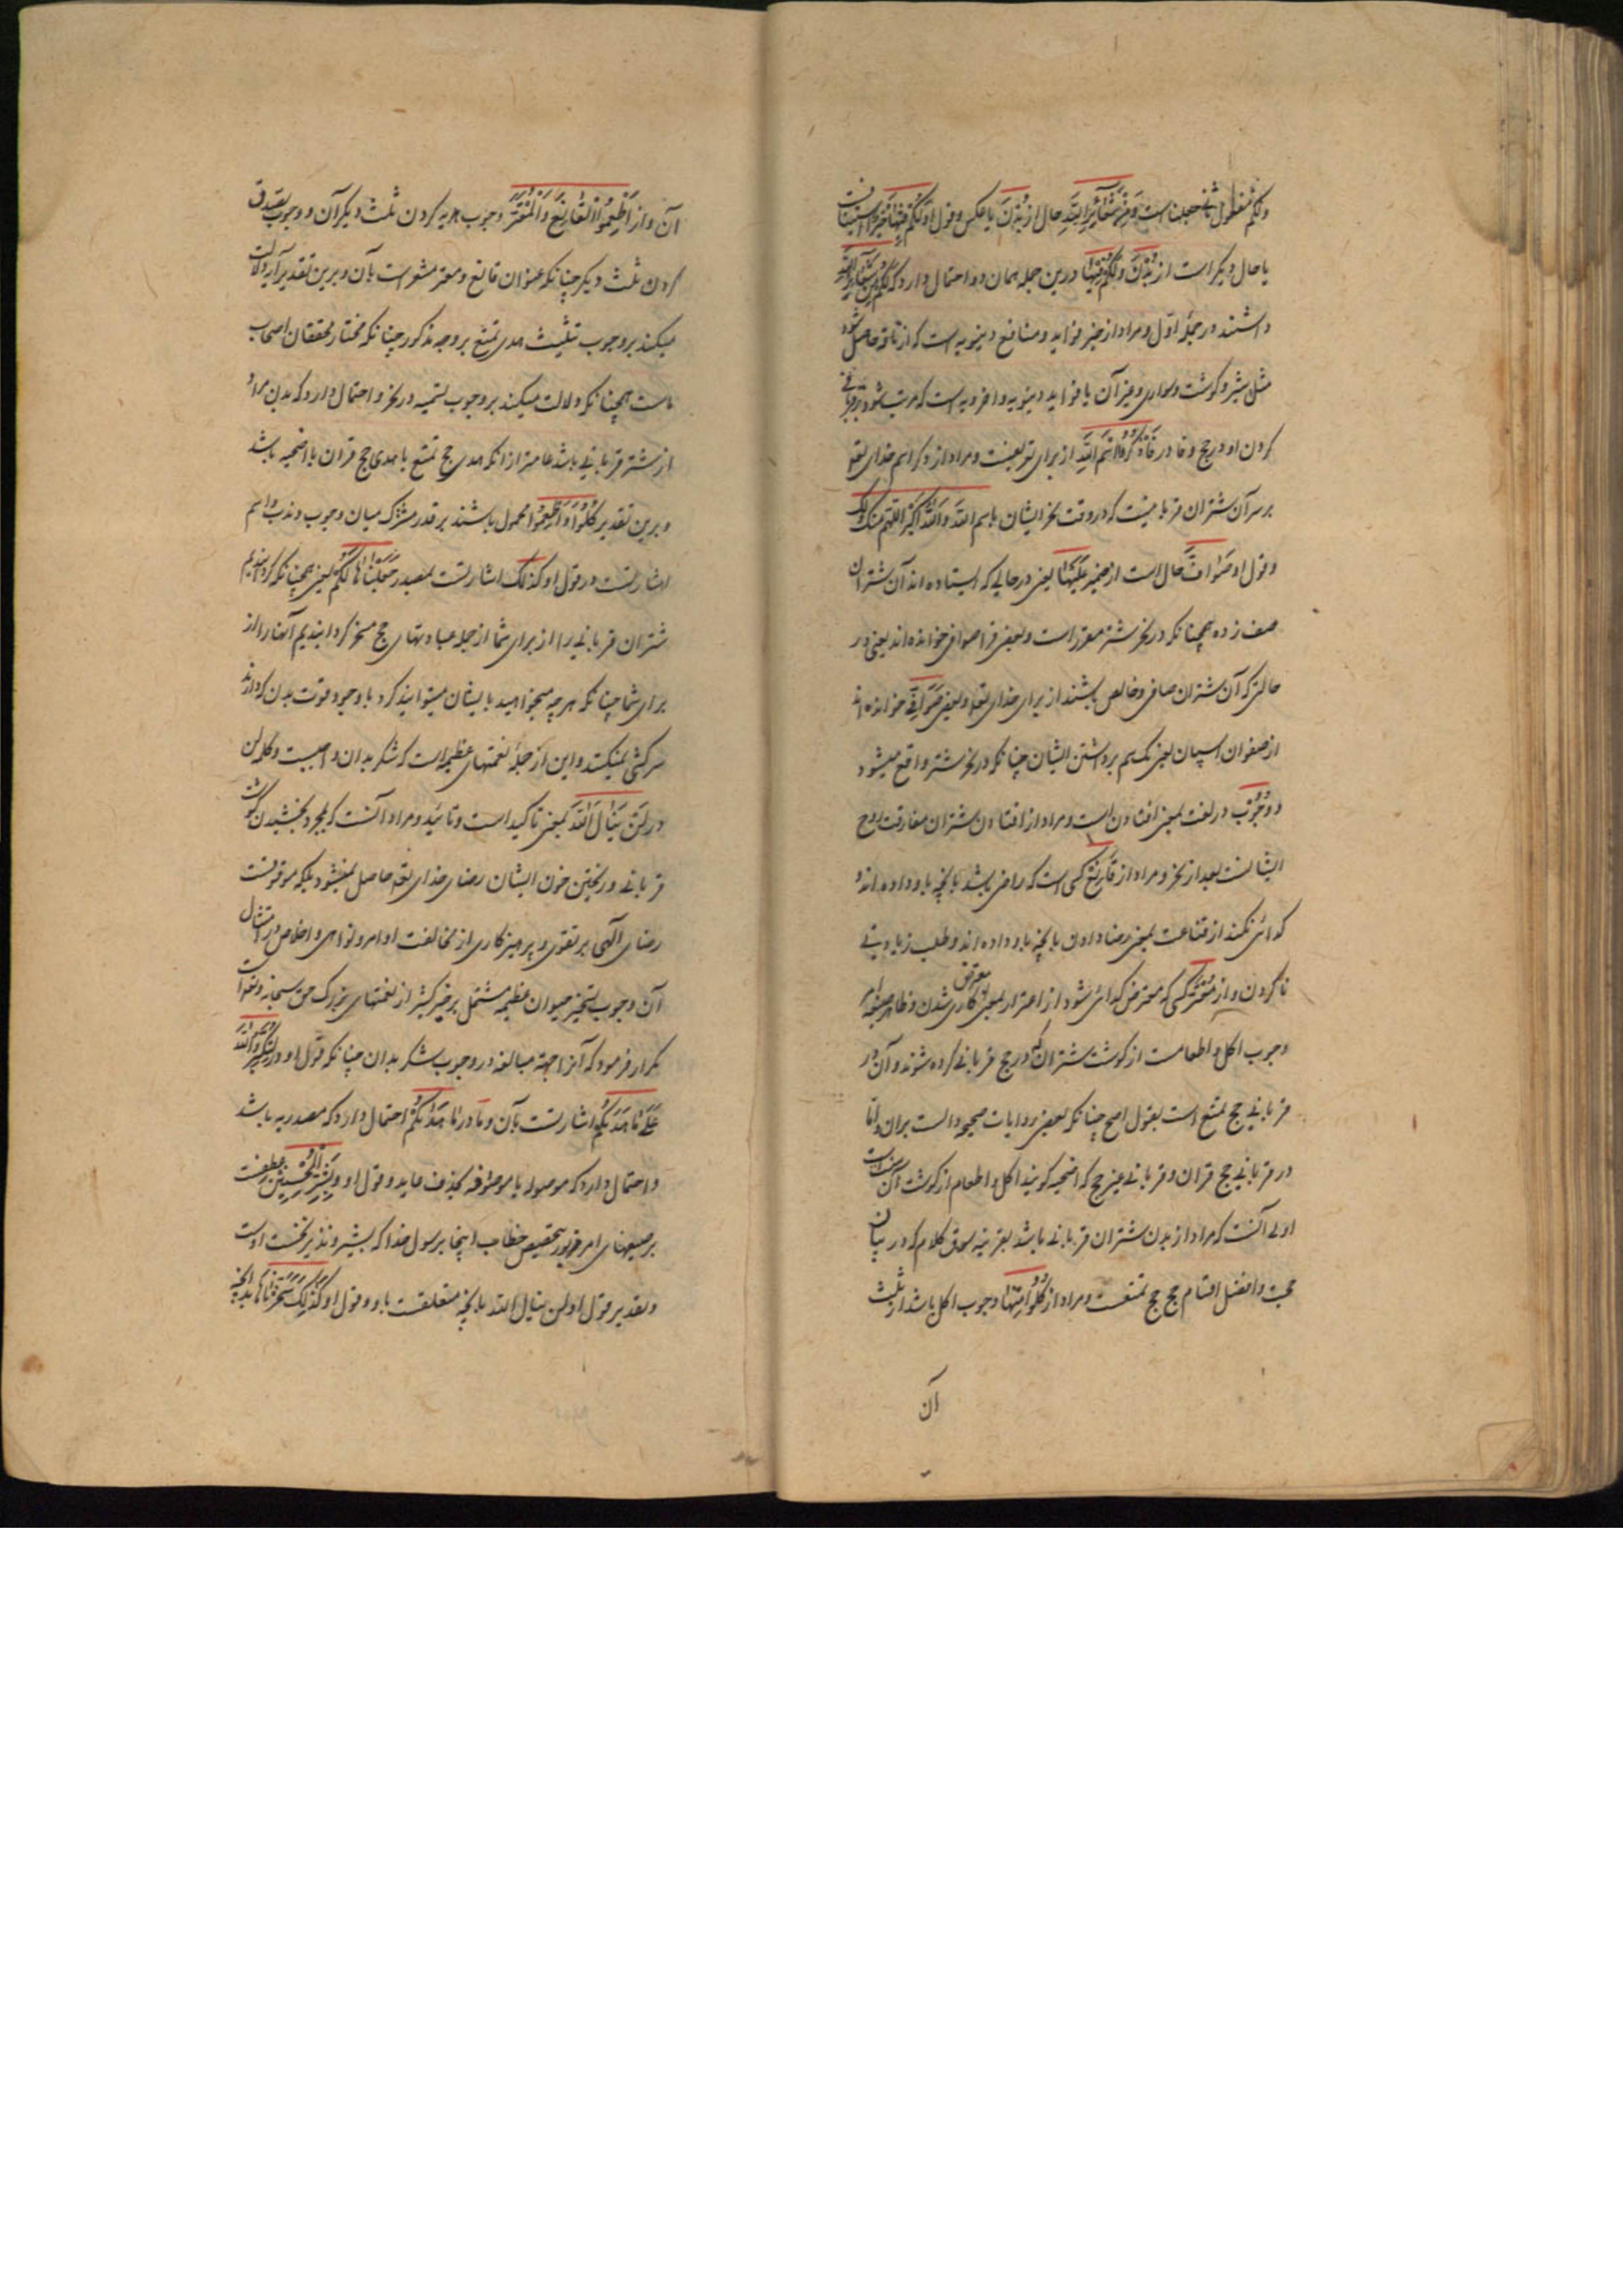 ولکم مفعول ثانی جعلناست و من شعائر الله حال از بدن یا عکس و قول او لکم فیها خیر استینافست
یا حال دیگر است از بدن و لکم فیها درین جمله همان دو احتمال دارد که لکم و من شعائر الله
داشتند در جملهٔ اوّل و مراد از خیر فواید و منافع دینویه است که از ناقه حاصل شود
مثل شیر و کوشت و سواری و غیر آن یا فواید دینویه و اخرویه است که مرتب شود بر قربانی
کردن او در حج و فا در فاذکروا اسم الله از برای تفریعست و مراد از ذکر اسم خدای تعو
بر سر آن شتران قربا نیست که در وقت نحر ایشان باسم الله و الله اکبر اللهم منک و لک
و قول او صوافّ حال است از ضمیر علیها یعنی در حالی که ایستاده اند آن شتران
صف زده همچنانکه در نحر شتر مقرر است و بعضی قرا صوافی خوانده اند یعنی در
حالتی که آن شتران صافی و خالص باشند از برای خدای تعو و بعضی صوافن خوانده اند
از صفوان اسپان یعنی یک سم برداشتن ایشان چنانکه در نحر شتر واقع میشود
و وجوب در لغت بمعنی افتادن است و مراد از افتادن شتران مفارقت روح
ایشانست بعد از نحر و مراد از قانع کسی است که راضی باشد بانچه باو داده اند و
کدائی نکند از قناعت بمعنی رضا دادن بانچه باو داده اند و طلب زیادتی
ناکردن و از معترّ کسی که معترض کدائی شود از اعترار بمعنی متعرض کاری شدن و ظاهر صیغهٔ امر
وجوب اکل و اطعامست از کوشت شتران که در حج قربانی کرده شوند و آن در
قربانی حج تمتع است بقول اصح چنانکه بعضی روایات صحیحه دالست بران و امّا
در قربانی حج قران و قربانی غیر حج که اضحیه کویند اکل و اطعام از کوشت آن سنت است
اولی آنست که مراد از بدن شتران قربانی باشد بقرینه سوق کلام که در بیان
حجست و افضل اقسام حج حج تمتعست و مراد از کلوا منها وجوب اکل باشد از ثلث
آن
آن و از اطعموا القانع و المعتر وجوب هدیه کردن ثلث دیکر آن و وجوب تصدق
کردن ثلث دیکر چنانکه عنوان قانع و معتر مشعر است بآن و برین تقدیر آیه دلالت
میکند بر وجوب تثلیث هدی تمتع بر وجه مذکور چنانکه مختار محققان اصحاب
ماست همچنانکه دلالت میکند بر وجوب تسمیه در نحر و احتمال دارد که بدن مراد
از شتر قربانی باشد عامتر از انکه هدی حج تمتع یا هدی حج قران یا اضحیه باشد
و برین تقدیر کلوا و اطعموا محمول باشند بر قدر مشترک میان وجوب و ندب و اسم
اشارتست در قول او کذلک اشارتست بمصدر جعلناها لکم یعنی همچنانکه کردانیدیم
شتران قربانی را از برای شما از جمله عبادتهای حج مسخر کردانیدیم آنها را از
برای شما چنانکه هر چه میخواهید بایشان میتوانید کرد با وجود قوت بدن که دارند
سرکشی نمیکنند و این از جملهٔ نعمتهای عظیمه است که شکر بدان واجبست و کلمه لن
در لن ینال الله بمعنی تاکید است و تائید و مراد آنست که بمجرد بخشیدن کوشت
قربانی و ریختن خون ایشان رضای خدای تعو حاصل نمیشود بلکه موقوفست
رضای الهی بر تقوی و پرهیزکاری از مخالفت اوامر و نواهی و اخلاص در امتثال
آن و جوب تسخیر حیوان عظیمه مشتمل بر خیر کثیر از نعمتهای بزرک حق سبحانه و تعو است
تکرار فرمود که آنرا جهته مبالغه در وجوب شکر بدان چنانکه قول او در لتکبروا الله
علی ما هدیکم اشارتست بآن و ما در ما هدیکم احتمال دارد که مصدریه باشد
و احتمال دارد که موصوله یا موصوفه بحذف عاید و قول او و بشر المحسنین عطفست
بر صیغهای امر مزبور بتخصیص خطاب اینجا برسول خدا که بشیر و نذیر نخست اوست
و تقدیر قول او لن ینال الله بانچه متعلقست باو و قول او کذلک سخرناها بدانچه